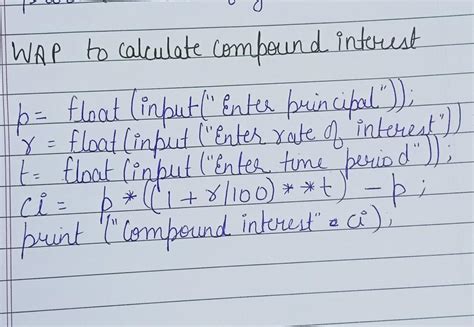 WAP to calculate compound interest
p = float (input ("Enter principal"));
r = float (input ("Enter rate of interest"))
t = float (input ("Enter time period"));
ci = p * ((1 + r/100) ** t) - p ;
print ("Compound interest" ci);